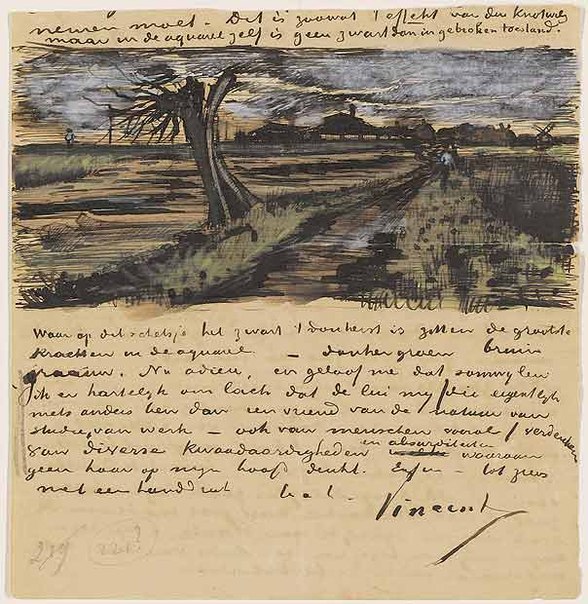 nemen moet. Dit is zoowat 't effekt van den Knotwilg
maar in de aquarel zelf is geen zwart dan in gebroken toestand.
Waar op dit schetsje het zwart 't donkerst is zitten de grootste
krachten in de aquarel — donkergroen bruin
graauw. Nu adieu, en geloof me dat somwijlen
ik er hartelijk om lach dat de lui mij /die eigentlijk
niets anders ben dan een vriend van de natuur van
studie, van werk – ook van menschen vooral/ verdenken
van diverse kwaadaardigheden en absurditeiten waaraan
geen haar op mijn hoofd denkt. Enfin – tot ziens
met een handdruk t. à t.
Vincent
239